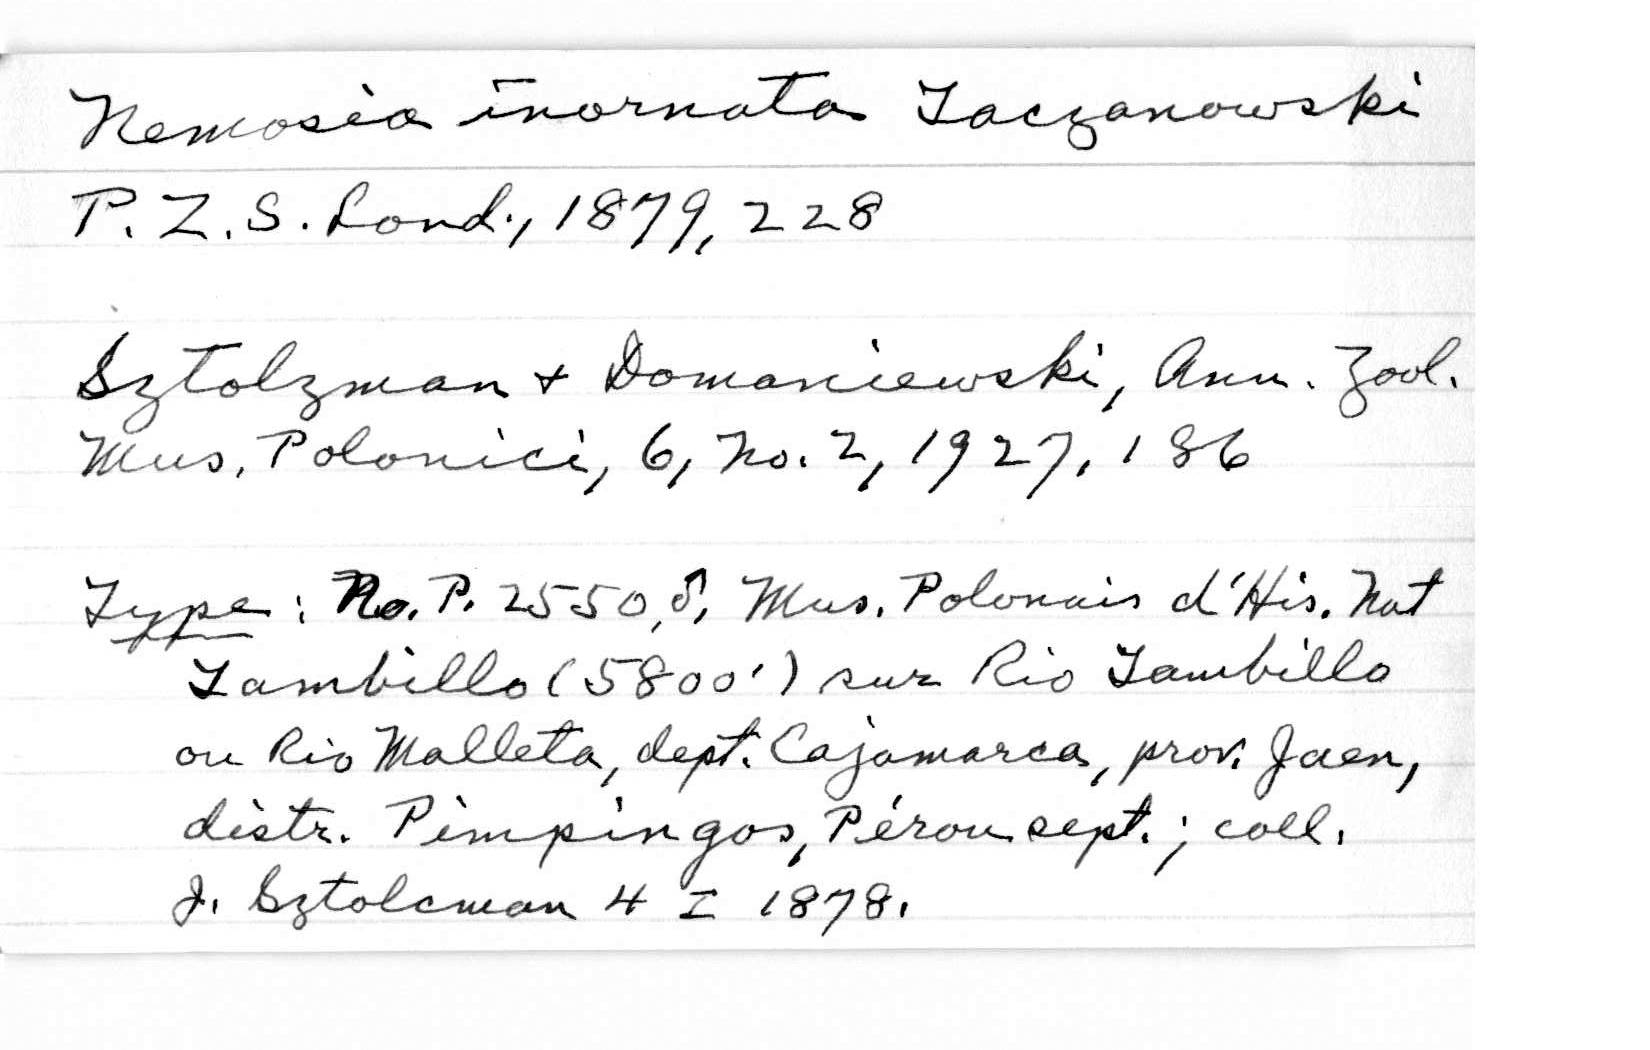 Nemosia inornata Taczanowski
P. Z. S. Lond., 1879, 228
Sztolzman + Domaniewski, Ann. Zool.
Mus. Polonici, 6, no. 2, 1927, 186
Type: No. P. 2550, ♂, Mus. Polonais d'His. Nat
Tambillo (5800') sur Rio Tambillo
ou Rio Malleta, dept. Cajamarca, prov. Jaen,
distr. Pimpingos, Pérou sept.; coll.
J. Sztolcman 4 I 1878.